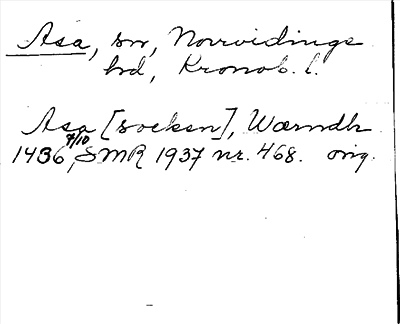 Asa, sn, Norrvidinge
hd, Kronob. l.
Asa [socken], Wærmdh
1436 9/10, SMR 1937 nr. 468. orig.